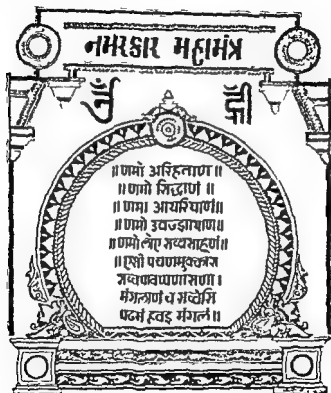 नमस्कार महामंत्र
ॐ ह्रीँ
॥ णमो अरिहंताणं ॥
॥ णमो सिद्धाणं ॥
॥ णमो आयरियाणं ॥
॥ णमो उवज्झायाणं ॥
॥ णमो लोए सव्वसाहूणं ॥
॥ एसो पंचणमुक्कारो
सव्वपावप्पणासणो ।
मंगलाणं च सव्वेसिं
पढमं हवइ मंगलं ॥